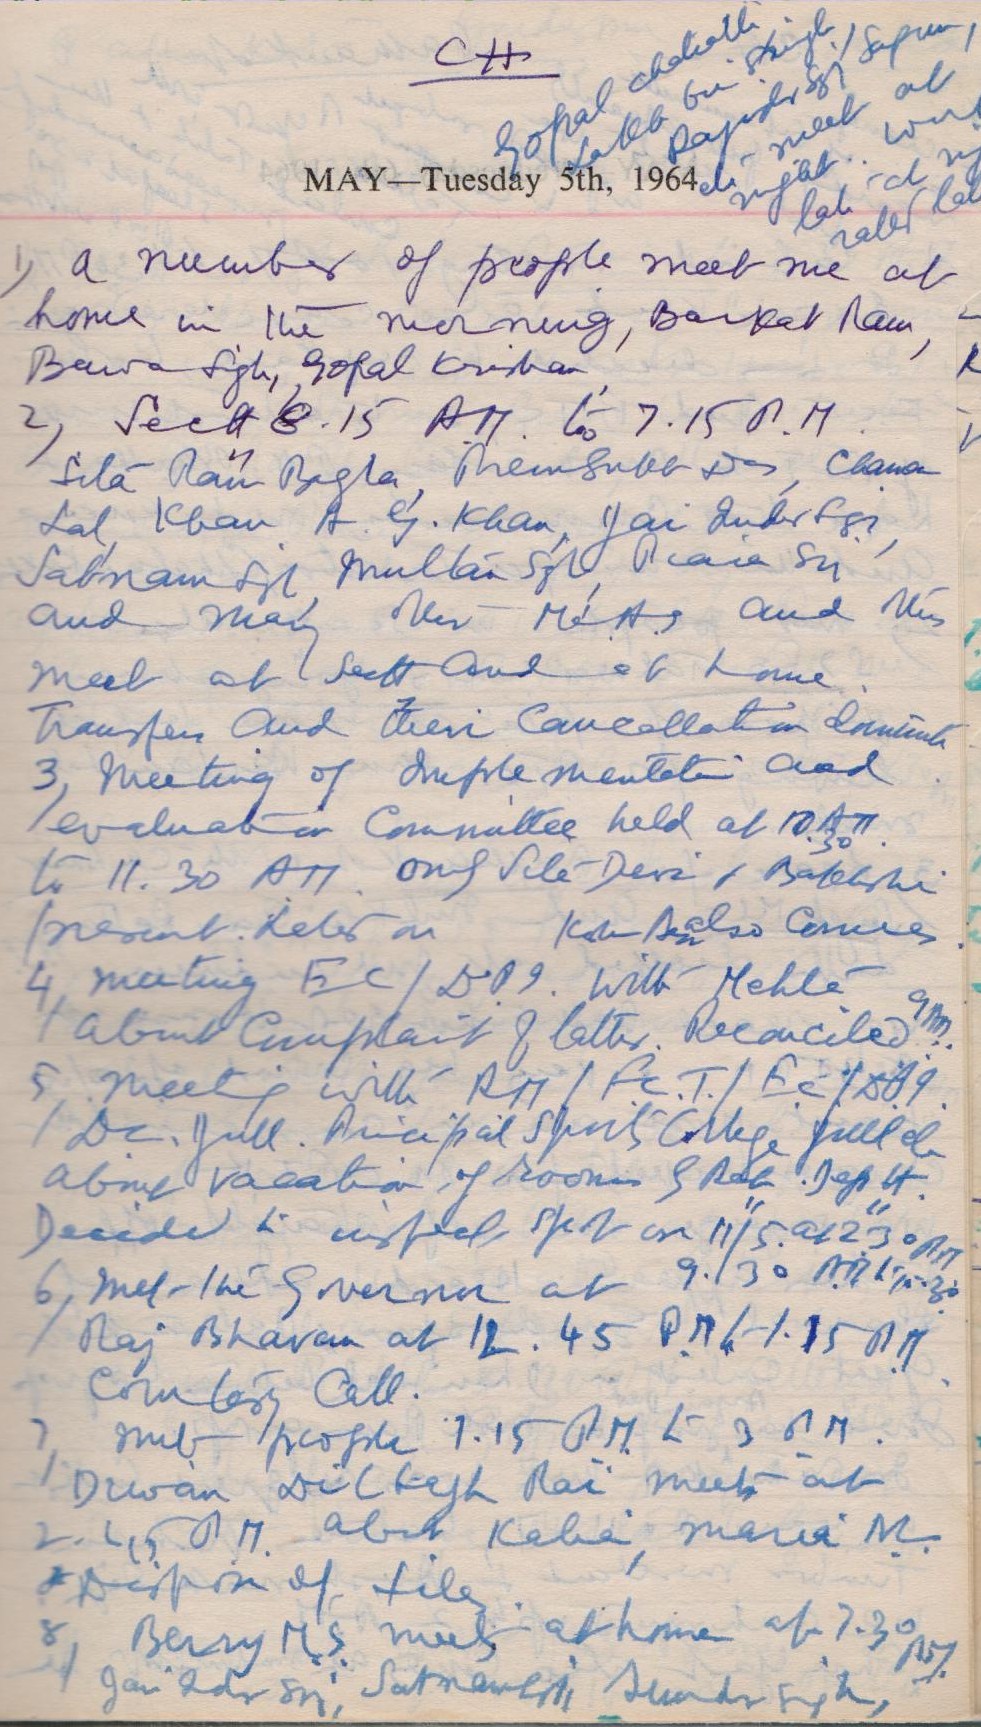 CH
Gopal
Lakh
Rajinder Sgr / Sapru,
meet at
night
late
MAY—Tuesday 5th, 1964
1, A number of people meet me at
home in the morning, Barkat Ram,
Bawa Sgh, Gopal Krishan,
2, Sectt 8.15 A.M. to 7.15 P.M.
Sita Ram Bagla, Prem Sukh Das, Chaman
Lal, Khan A. G. Khan, Jai Inder Sgr,
Satnam Sgh, Multan Sgh, Piara Sgr
and many other M.L.As and others
meet at Sectt and at home.
Transfers and their Cancellation dominate
3, Meeting of Implementation and
evaluation Committee held at 10.30 AM.
to 11.30 AM. Only Sita Devi & Bakhshi
present. Later on also comes.
4, meeting EC / D.P.I. with Mehta
about Complaint of latter. Reconciled 9 AM.
5, meeting with RM / F.C.T. / E.C / D.P.I.
D.C. Jull. Principal Sports College Jull
about vacation of rooms by Reh. Deptt.
Decided to inspect spot on 11/5 at 2.30 PM
6, Met the Governor at 9.30 AM to 10.30
Raj Bhavan at 12.45 P.M to 1.15 P.M.
Courtesy Call.
7, met people 1.15 P.M. to 3 P.M.
Diwan Dilbagh Rai meets at
2.45 P.M. about Kalia,
Dispose of files
8, Berry M.S. meets at home at 7.30 P.M.
Jai Inder Sgr, Satnam Sgh, Sunder Singh,